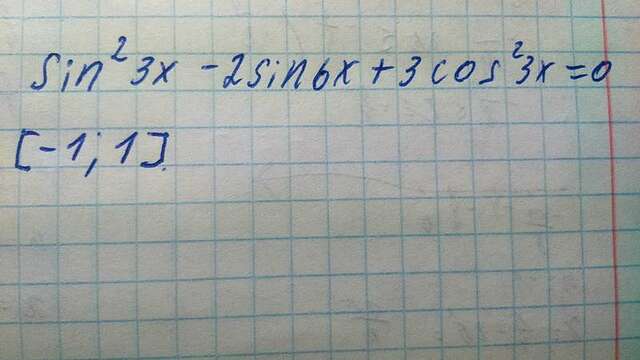 sin²3x - 2sin6x + 3cos²3x = 0
[-1; 1].